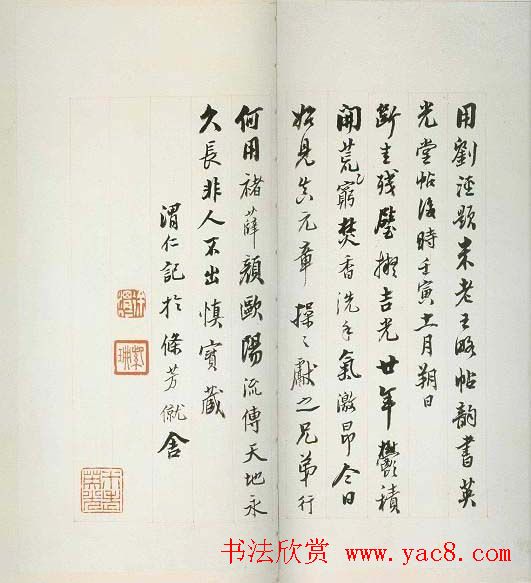 用劉涇題米老王略帖韵書英
光堂帖後時壬寅十一月朔日
斷圭殘璧擬吉光廿年鬱積
開荒窮焚香洗手氣激昂今日
始見真元章操之獻之兄弟行
何用褚薛顏歐陽流傳天地永
久長非人不出慎寶藏
渭仁記於條芳僦舍
書法欣賞 www.yac8.com